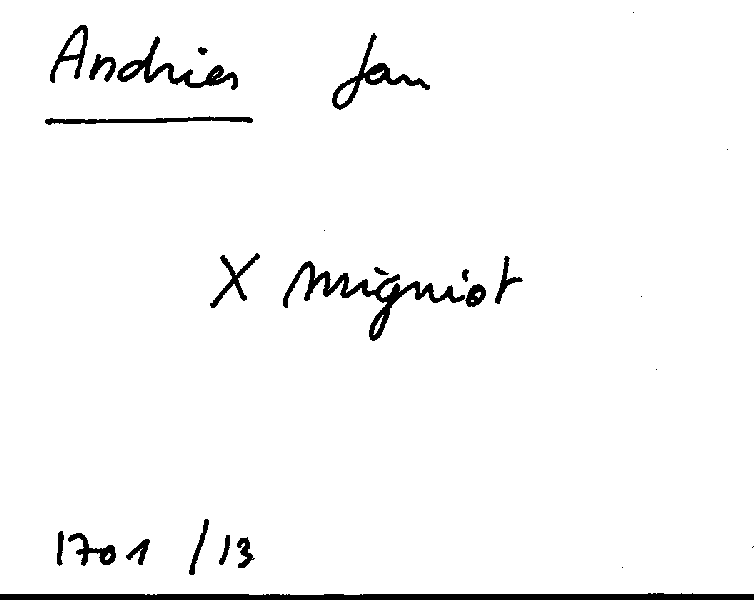 Andries Jan
X Migniot
1701 / 13